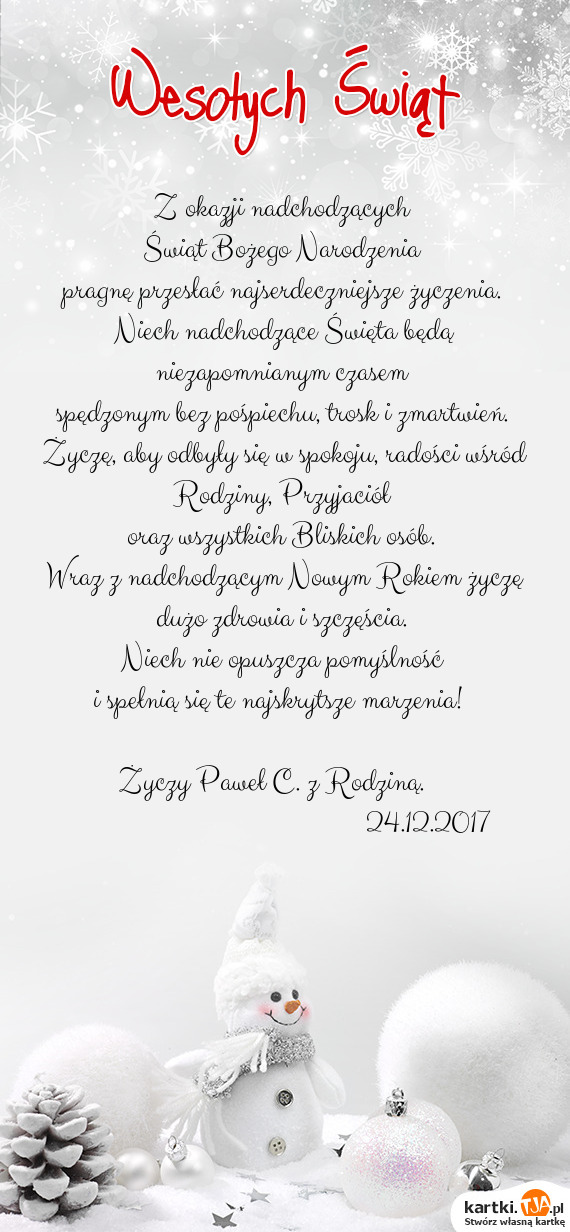 Wesołych Świąt
Z okazji nadchodzących
Świąt Bożego Narodzenia
pragnę przesłać najserdeczniejsze życzenia.
Niech nadchodzące Święta będą
niezapomnianym czasem
spędzonym bez pośpiechu, trosk i zmartwień.
Życzę, aby odbyły się w spokoju, radości wśród
Rodziny, Przyjaciół
oraz wszystkich Bliskich osób.
Wraz z nadchodzącym Nowym Rokiem życzę
dużo zdrowia i szczęścia.
Niech nie opuszcza pomyślność
i spełnią się te najskrytsze marzenia!
Życzy Paweł C. z Rodziną.
24.12.2017
kartki.TJA.pl
Stwórz własną kartkę